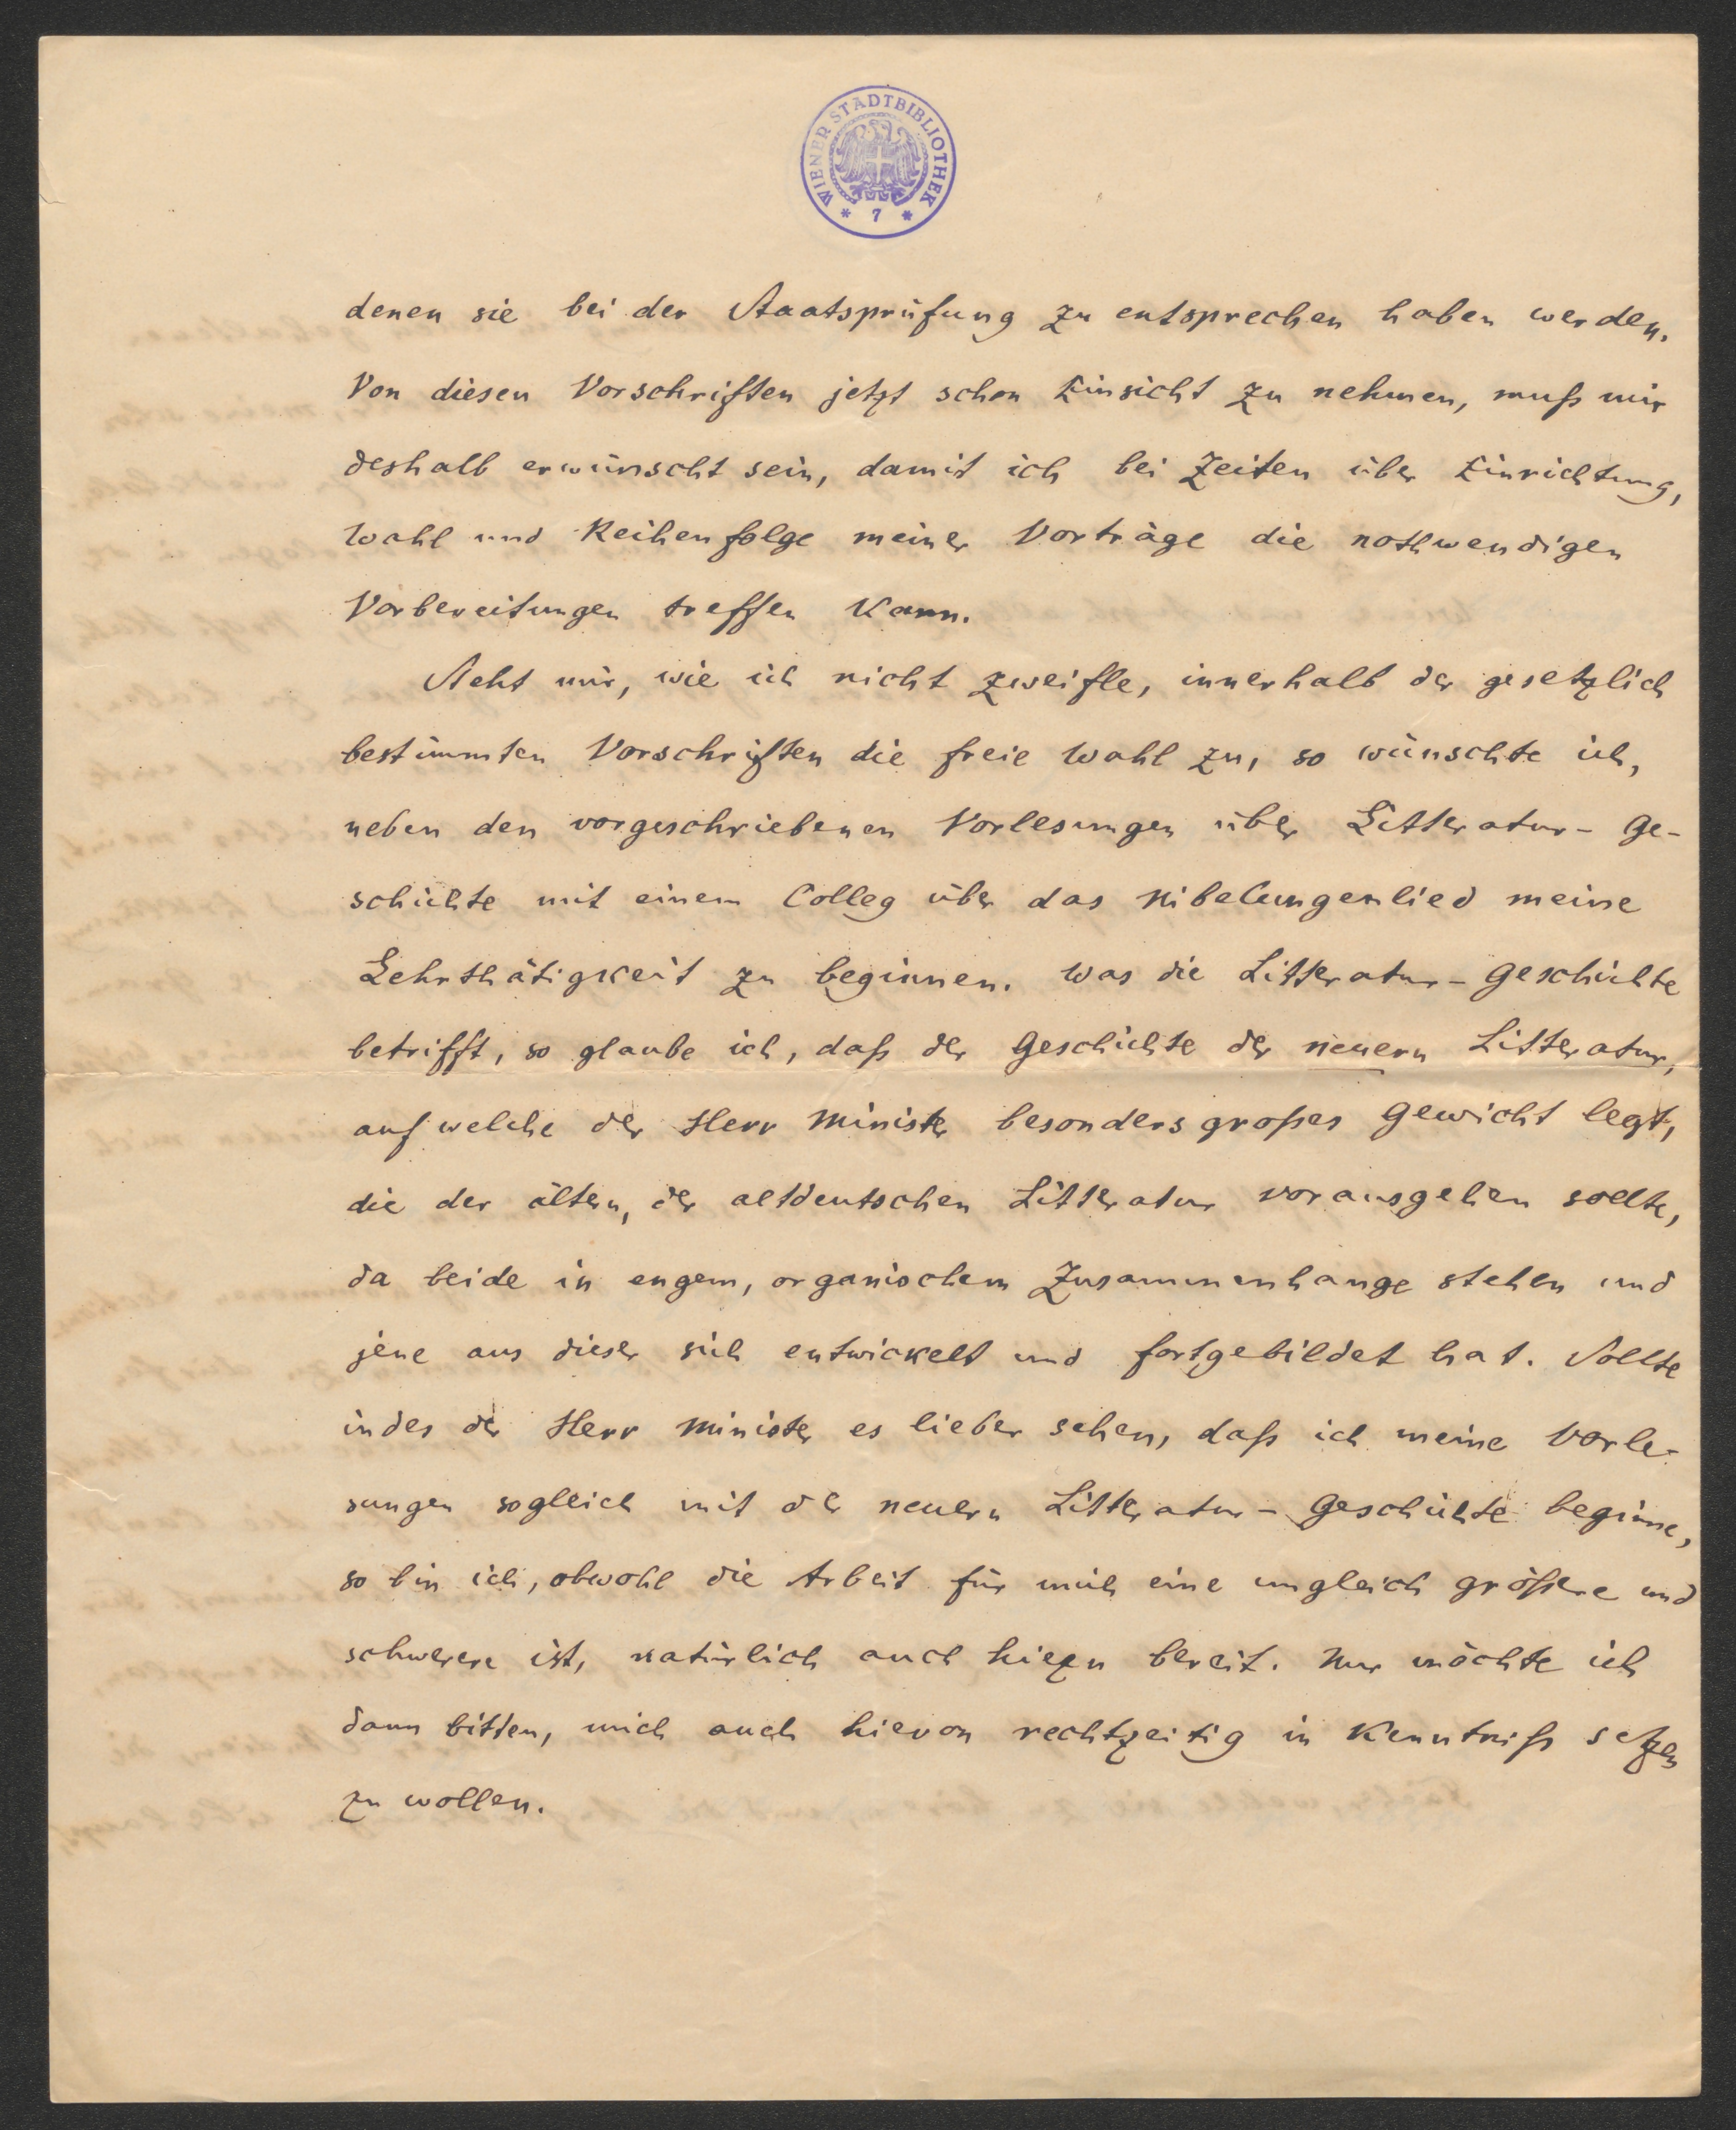 WIENER STADTBIBLIOTHEK
* 7 *
denen sie bei der Staatsprüfung zu entsprechen haben werden.
Von diesen Vorschriften jetzt schon Einsicht zu nehmen, muß mir
deshalb erwünscht sein, damit ich bei Zeiten über Einrichtung,
Wahl und Reihenfolge meiner Vorträge die nothwendigen
Vorbereitungen treffen kann.
Steht mir, wie ich nicht zweifle, innerhalb der gesetzlich
bestimmten Vorschriften die freie Wahl zu, so wünschte ich,
neben den vorgeschriebenen Vorlesungen über Litteratur-Ge-
schichte mit einem Colleg über das Nibelungenlied meine
Lehrthätigkeit zu beginnen. Was die Litteratur-Geschichte
betrifft, so glaube ich, daß der Geschichte der neuern Litteratur,
auf welche der Herr Minister besonders großes Gewicht legt,
die der ältern, der altdeutschen Litteratur vorausgehen sollte,
da beide in engem, organischem Zusammenhange stehen und
jene aus dieser sich entwickelt und fortgebildet hat. Sollte
indes der Herr Minister es lieber sehen, daß ich meine Vorle-
sungen sogleich mit der neuern Litteratur-Geschichte beginne,
so bin ich, obwohl die Arbeit für mich eine ungleich größere und
schwerere ist, natürlich auch hiezu bereit. Nur möchte ich
dann bitten, mich auch hievon rechtzeitig in Kenntniß setzen
zu wollen.